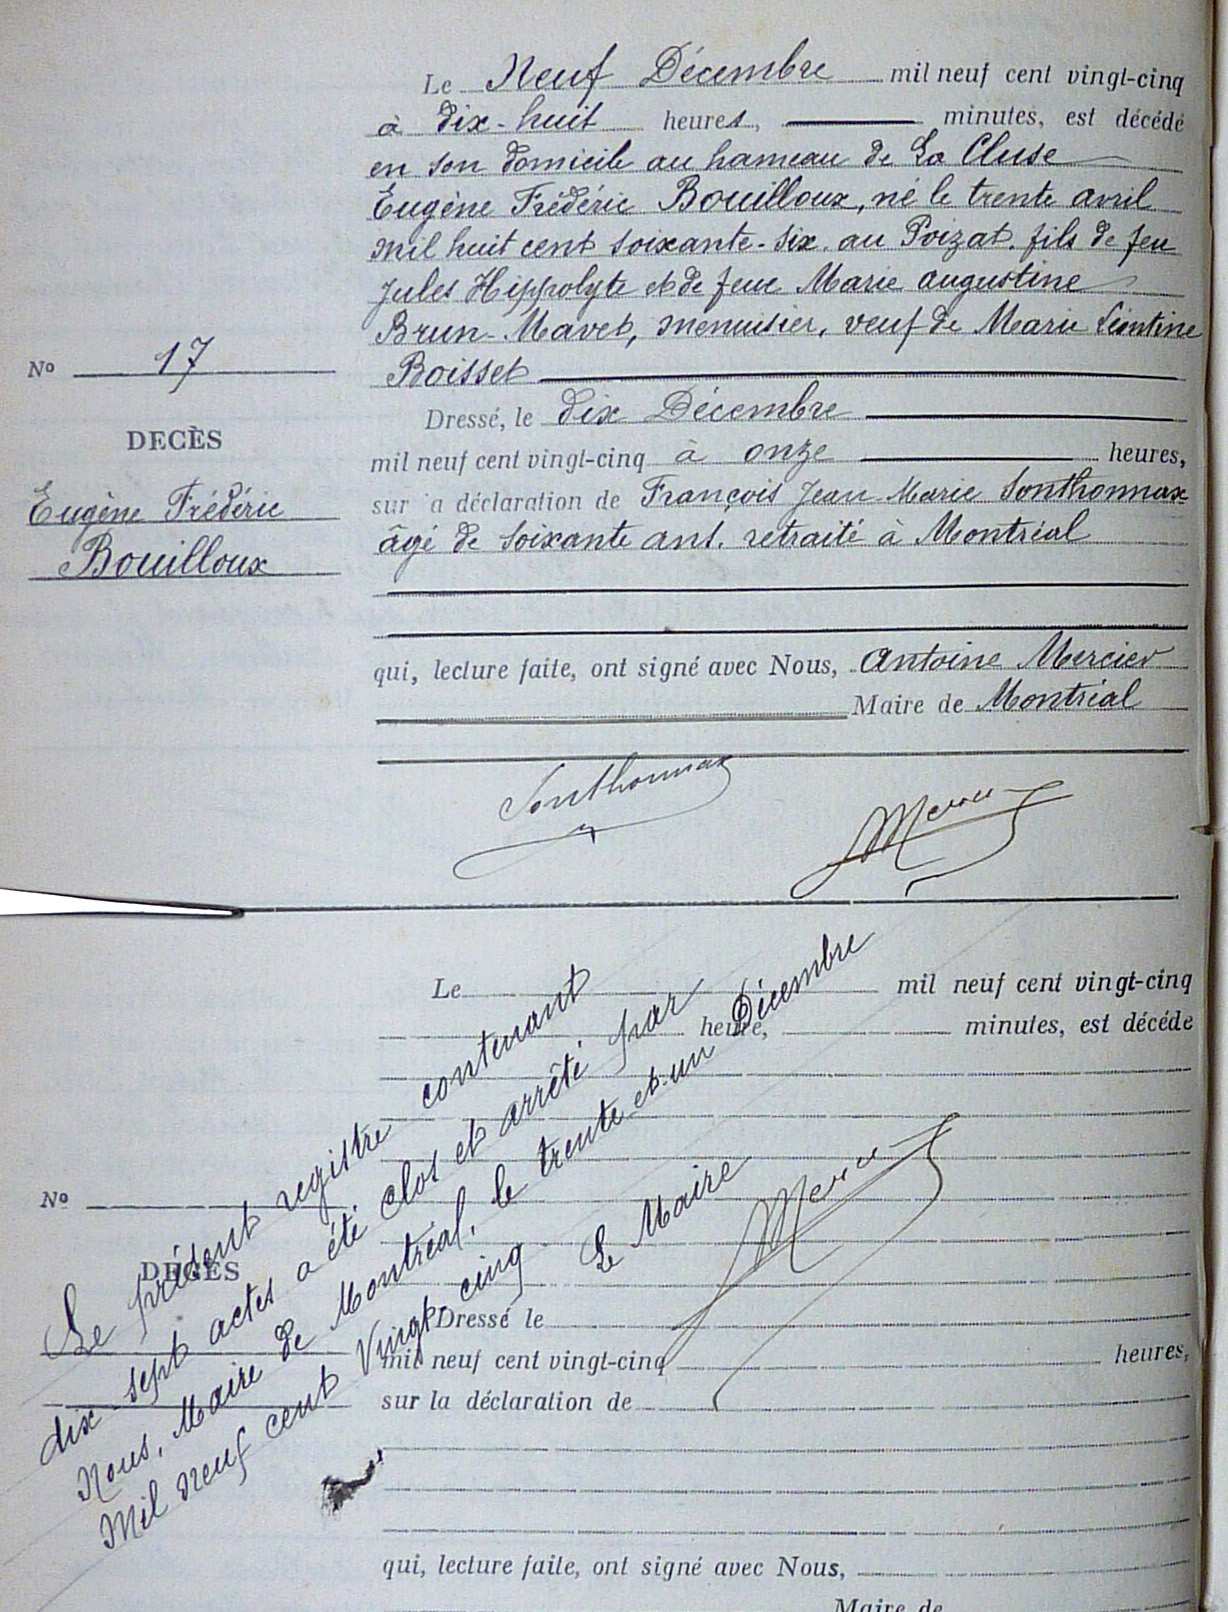 Le Neuf Décembre mil neuf cent vingt-cinq
à dix-huit heures, minutes, est décédé
en son domicile au hameau de La Cluse
Eugène Frédéric Bouilloux, né le trente avril
mil huit cent soixante-six. au Poizat. fils de feu
Jules Hippolyte et de feue Marie augustine
Brun-Mavet, menuisier, veuf de Marie Léontine
Boisset
Nº 17
DECÈS
Eugène Frédéric
Bouilloux
Dressé, le dix Décembre
mil neuf cent vingt-cinq à onze heures,
sur a déclaration de François Jean-Marie Sonthonnax
âgé de soixante ans. retraité à Montréal
qui, lecture faite, ont signé avec Nous, Antoine Mercier
Maire de Montréal
Sonthonnax
Mercier
Le mil neuf cent vingt-cinq
heure, minutes, est décédé
Nº
DECÈS
Le présent registre contenant
dix-sept actes a été clos et arrêté par
Nous, Maire de Montréal, le trente-et-un Décembre
Mil neuf cent Vingt-cinq Le Maire
Mercier
Dressé le
mil neuf cent vingt-cinq heures,
sur la déclaration de
qui, lecture faite, ont signé avec Nous,
Maire de